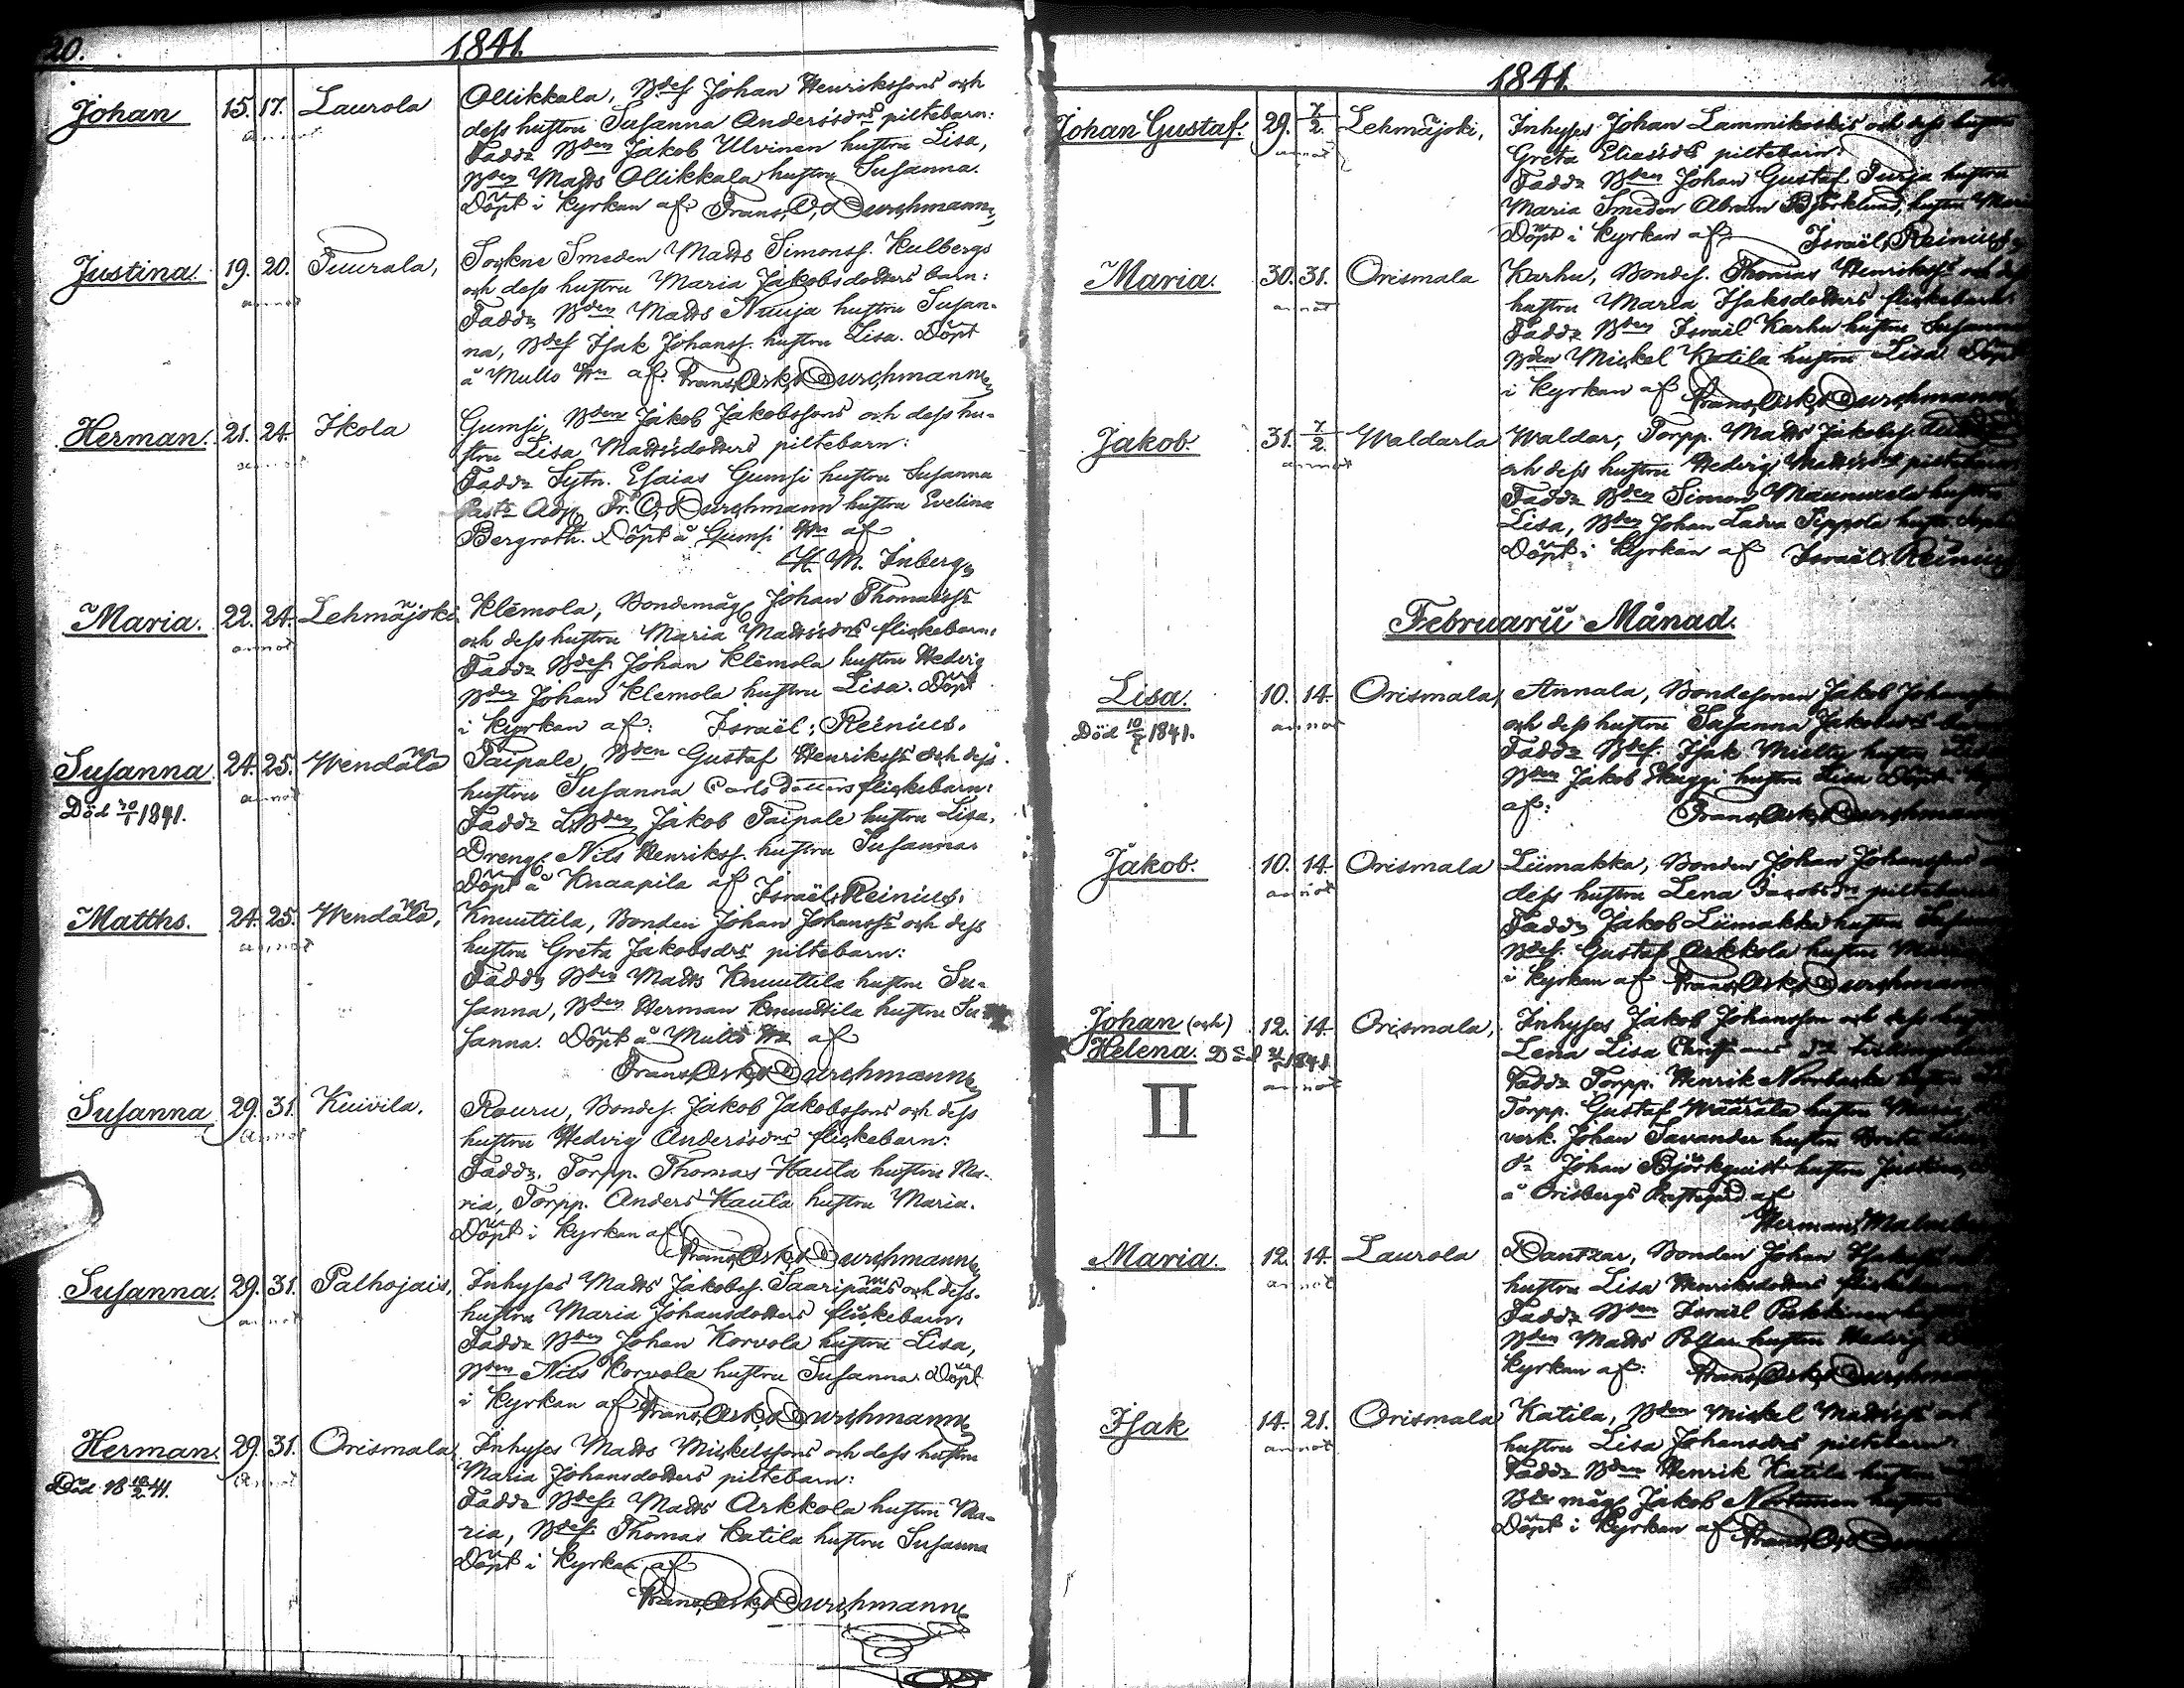 20.
1841.
Johan 15. 17. Laurola Ollikkala, Bdes Johan Henrikssons och
annot dess hustru Susanna Andersdrs piltebarn:
Fadd: Bden Jakob Ulvinen hustru Lisa,
Bden Matts Ollikkala hustru Susanna.
Döpt i Kyrkan af: Frans O. Durchmann
Justina. 19. 20. Tuurala, Sockne Smeden Matts Simonss. Kulbergs
annot och dess hustru Maria Jakobsdotters barn:
Fadd: Bden Matts Nuuja hustru Susan-
na, Bdes Isak Johanss. hustru Lisa. Döpt
å Mullo Hn af: Frans Osk. Durchmann
Herman. 21. 24. Ikola Gumsi, Bden Jakob Jakobssons och dess hu-
annot stru Lisa Mattsdotters piltebarn:
Fadd: Sytn. Esaias Gumsi hustru Susanna
Past: Adj. Fr. O. Durchmann hustru Evelina
Bergroth. Döpt å Gumsi Hn af
H. M. Inberg
Maria. 22. 24. Lehmäjoki Klemola, Bondemåg Johan Thomass:
annot och dess hustru Maria Mattsdrs flickebarn:
Fadd: Bdes. Johan Klemola hustru Hedvig
Bden Johan Klemola hustru Lisa. Döpt
i Kyrkan af: Israël: Reinius.
Susanna 24. 25. Wendälä Taipale, Bden Gustaf Henrikss: och dess
annot hustru Susanna Carls Dotters flickebarn:
Död 30/1 1841. Fadd: Bden Jakob Taipale hustru Lisa.
Dreng. Nils Henrikss. hustru Susanna.
Döpt å Knaapila af Israël: Reinius.
Matths. 24. 25. Wendälä, Knuuttila, Bonden Johan Johanss: och dess
annot hustru Greta Jakobsdrs piltebarn:
Fadd: Bden Matts Knuuttila hustru Su-
sanna, Bden Herman Knuuttila hustru Su-
sanna. Döpt å Mullo Hn af
Frans Osk. Durchmann
Susanna 29. 31. Kuivila. Rauru, Bondes. Jakob Jakobssons och dess
annot hustru Hedvig Andersdrs flickebarn:
Fadd: Torpp. Thomas Hauta hustru Ma-
ria, Torpp. Anders Haula hustru Maria.
Döpt i Kyrkan af
Frans Osk. Durchmann
Susanna. 29. 31. Palhojais, Inhyses Matts Jakobss. Saaripääs och dess
annot hustru Maria Johansdotters flickebarn.
Fadd: Bden Johan Korvola hustru Lisa,
Bden Nils Korvola hustru Susanna. Döpt
i Kyrkan af Frans Osk. Durchmann
Herman. 29. 31. Orismala Inhyses Matts Mickelssons och dess hustru
Död 18 18/2 41. annot Maria Johansdotters piltebarn:
Fadd: Bdes. Matts Arkkola hustru Ma-
ria, Bdes. Thomas Katila hustru Susanna
Döpt i Kyrkan af
Frans Osk. Durchmann
1841.
Johan Gustaf. 29. 7/2. Lehmäjoki, Inhyses Johan Lammikoskis och dess hustru
annot Greta Eliasdrs piltebarn:
Fadd: Bden Johan Gustaf Turja hustru
Maria Smeden Abram Björklund, hustru
Döpt i Kyrkan af Israël: Reinius
Maria. 30. 31. Orismala Karhu, Bondes. Thomas Henrikss: och
annot hustru Maria Isaksdotters flickebarn:
Fadd: Bden Israel Karhu hustru Susanna
Bden Mickel Katila hustru Lisa Döpt
i Kyrkan af Frans Osk. Durchmann
Jakob. 31. 7/2. Waldarla Waldar, Torpp. Matts Jakobss.
annot och dess hustru Hedvig Mattsdrs piltebarn
Fadd: Bden Simon Maunuxela hustru
Lisa, Bden Johan Ladva Sippola hustru
Döpt i Kyrkan af Israël: Reinius
Februarii Månad.
Lisa. 10. 14. Orismala, Annala, Bondesonen Jakob Johanssons
Död 10/7 1841. annot och dess hustru Susanna
Fadd: Bdes. Isak hustru
Bden Jakob Skaggi hustru Lisa Döpt
af: Frans Osk. Durchmann
Jakob. 10. 14. Orismala Liimakka, Bonden Johan Johanssons
annot dess hustru Lena Jacobsdr piltebarn
Fadd: Jakob Liimakka hustru Susanna
Bdes. Gustaf Arkkola hustru
i Kyrkan af Frans Osk. Durchmann
Johan (och) 12. 14. Orismala, Inhyses Jakob Johansson och dess
Helena. Död 1841 Lena Lisa
annot Fadd: Torpp. Henrik Norrbacka hustru
II Torpp. Gustaf Wäärälä hustru Maria
verk. Johan Savander hustru Brita
Johan Björkquist hustru Justina,
å Orisbergs Prestegård af
Herman Malmberg
Maria. 12. 14. Laurola Dantzar, Bonden Johan
annot hustru Lisa Henriksdotters flickebarn
Fadd: Bden Israël hustru
Bden Matts hustru Hedvig
Kyrkan af: Frans Osk. Durchmann
Isak 14. 21. Orismala Katila, Bden Mickel Mattss: och
annot hustru Lisa Johansdrs piltebarn
Fadd: Bden Henrik Katila hustru
måg Jakob hustru
Döpt i Kyrkan af Frans O. Durchmann